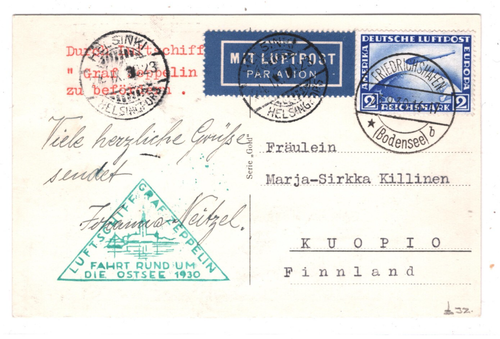 Durch Luftschiff
" Graf Zeppelin
zu befördern .
MIT LUFTPOST
PAR AVION
DEUTSCHE LUFTPOST
AMERIKA
EUROPA
2 REICHSMARK 2
FRIEDRICHSHAFEN
(Bodensee) b
HELSINKI
HELSINGFORS
HELSINGFORS
Viele herzliche Grüße
sendet
Johanna Neitzel.
LUFTSCHIFF GRAF ZEPPELIN
FAHRT RUND UM
DIE OSTSEE 1930
Serie „Gold“
Fräulein
Marja-Sirkka Killinen
KUOPIO
Finnland